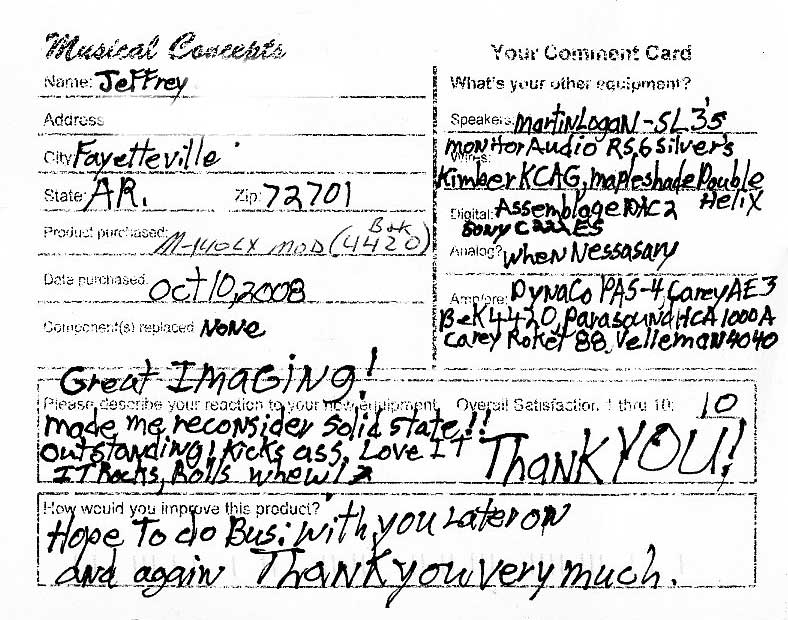 Musical Concepts
Name: Jeffrey
Address
City Fayetteville
State: AR. Zip: 72701
Product purchased: M-140LX MOD (B+K 4420)
Date purchased: Oct 10, 2008
Component(s) replaced NONE
Your Comment Card
What's your other equipment?
Speakers: MartinLogan - SL3's
Monitor Audio RS6 Silver's
Wires: Kimber KCAG, Mapleshade Double Helix
Digital: Assemblage DAC 2
Sony C222ES
Analog? When Nessasary
Amp/pre: DYNACO PAS-4, Carey AE3
B&K 4420, Parasound HCA1000A
Carey Roket 88, Velleman 4040
Great IMAGING!
Please describe your reaction to your new equipment Overall Satisfaction 1 thru 10: 10
made me reconsider solid state!!
outstanding! Kicks ass. Love IT
IT Rocks, Rolls whew!
Thank YOU!
How would you improve this product?
Hope To do Bus. with you Later on
and again Thank you very much.